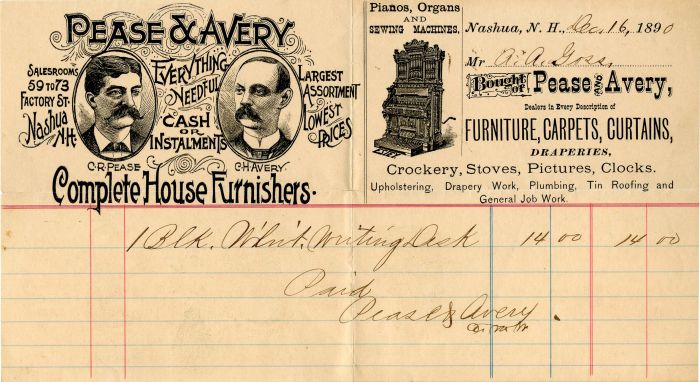 PEASE & AVERY
SALESROOMS
59 TO 73
FACTORY ST.
NASHUA
N.H.
EVERYTHING
NEEDFUL
CASH
OR
INSTALMENTS
LARGEST
ASSORTMENT
LOWEST
PRICES
C.R. PEASE
C.H. AVERY
Complete House Furnishers.
Pianos, Organs
AND
SEWING MACHINES,
Nashua, N. H., Dec. 16, 1890
Mr A. A. Goss,
Bought of Pease AND Avery,
Dealers in Every Description of
FURNITURE, CARPETS, CURTAINS,
DRAPERIES,
Crockery, Stoves, Pictures, Clocks.
Upholstering, Drapery Work, Plumbing, Tin Roofing and
General Job Work.
1 Blk. W'ln't. Writing Desk 14 00 14 00
Paid
Pease & Avery